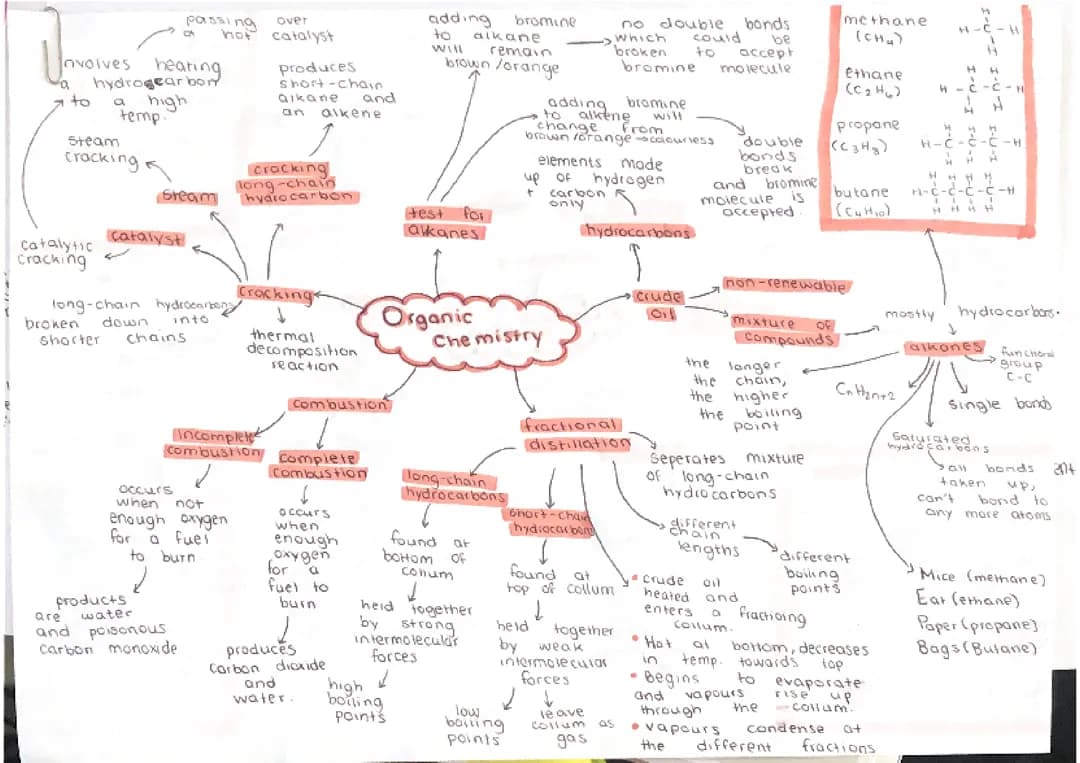 passing over
a hot catalyst
involves heating
a hydrocarbon
to a high
temp.
steam
cracking
steam
catalytic
cracking
catalyst
produces
short-chain
alkane and
an alkene
cracking
long-chain
hydrocarbon
cracking
long-chain hydrocarbons
broken down into
shorter chains
thermal
decomposition
reaction
adding bromine
to alkane
will remain
brown/orange
no double bonds
which could be
broken to accept
bromine molecule
adding bromine
to alkene will
change from
brown/orange → colourless
double
bonds
break
and bromine
molecule is
accepted.
test for
alkanes
elements made
up of hydrogen
+ carbon
only
hydrocarbons
methane
(CH4)
H
H-C-H
H
ethane
(C2H6)
H H
H-C-C-H
H H
propane
(C3H8)
H H H
H-C-C-C-H
H H H
butane
(C4H10)
H H H H
H-C-C-C-C-H
H H H H
Organic
Chemistry
crude
oil
non-renewable
mixture of
compounds
mostly hydrocarbons.
alkanes
functional
group
C-C
single bonds
CnH2n+2
the longer
the chain,
the higher
the boiling
point
saturated
hydrocarbons
all bonds are
taken up,
can't bond to
any more atoms
Mice (methane)
Eat (ethane)
Paper (propane)
Bags (Butane)
combustion
incomplete
combustion
occurs
when not
enough oxygen
for a fuel
to burn
products
are water
and poisonous
carbon monoxide
complete
combustion
occurs
when
enough
oxygen
for a
fuel to
burn
produces
carbon dioxide
and
water.
fractional
distillation
seperates mixture
of long-chain
hydrocarbons
different
chain
lengths
different
boiling
points
long-chain
hydrocarbons
found at
bottom of
collum
held together
by strong
intermolecular
forces
high
boiling
points
short-chain
hydrocarbons
found at
top of collum
held together
by weak
intermolecular
forces
low
boiling
points
leave
collum as
gas
• crude oil
heated and
enters a fractioing
collum.
• Hot at bottom, decreases
in temp. towards top
• Begins to evaporate
and vapours rise up
through the collum.
• vapours condense at
the different fractions